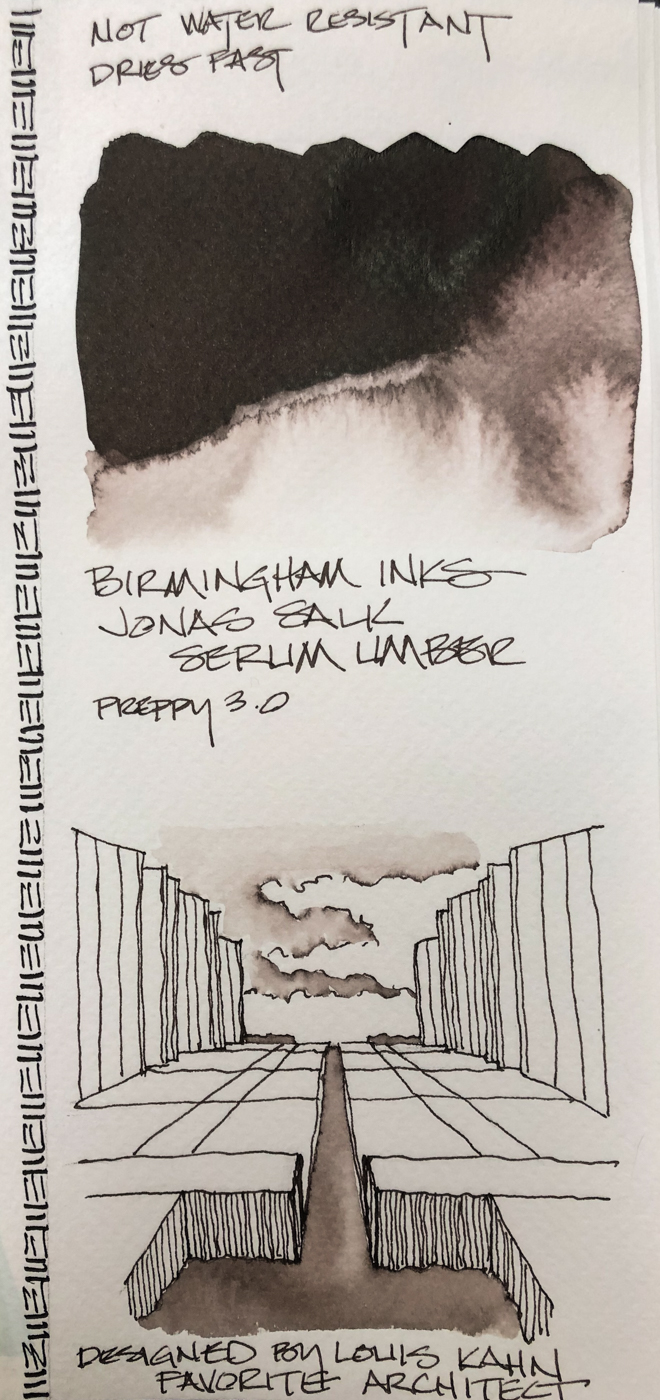 NOT WATER RESISTANT
DRIES FAST
BIRMINGHAM INKS
JONAS SALK
SERUM UMBER
PREPPY 3.0
DESIGNED BY LOUIS KAHN
FAVORITE ARCHITECT